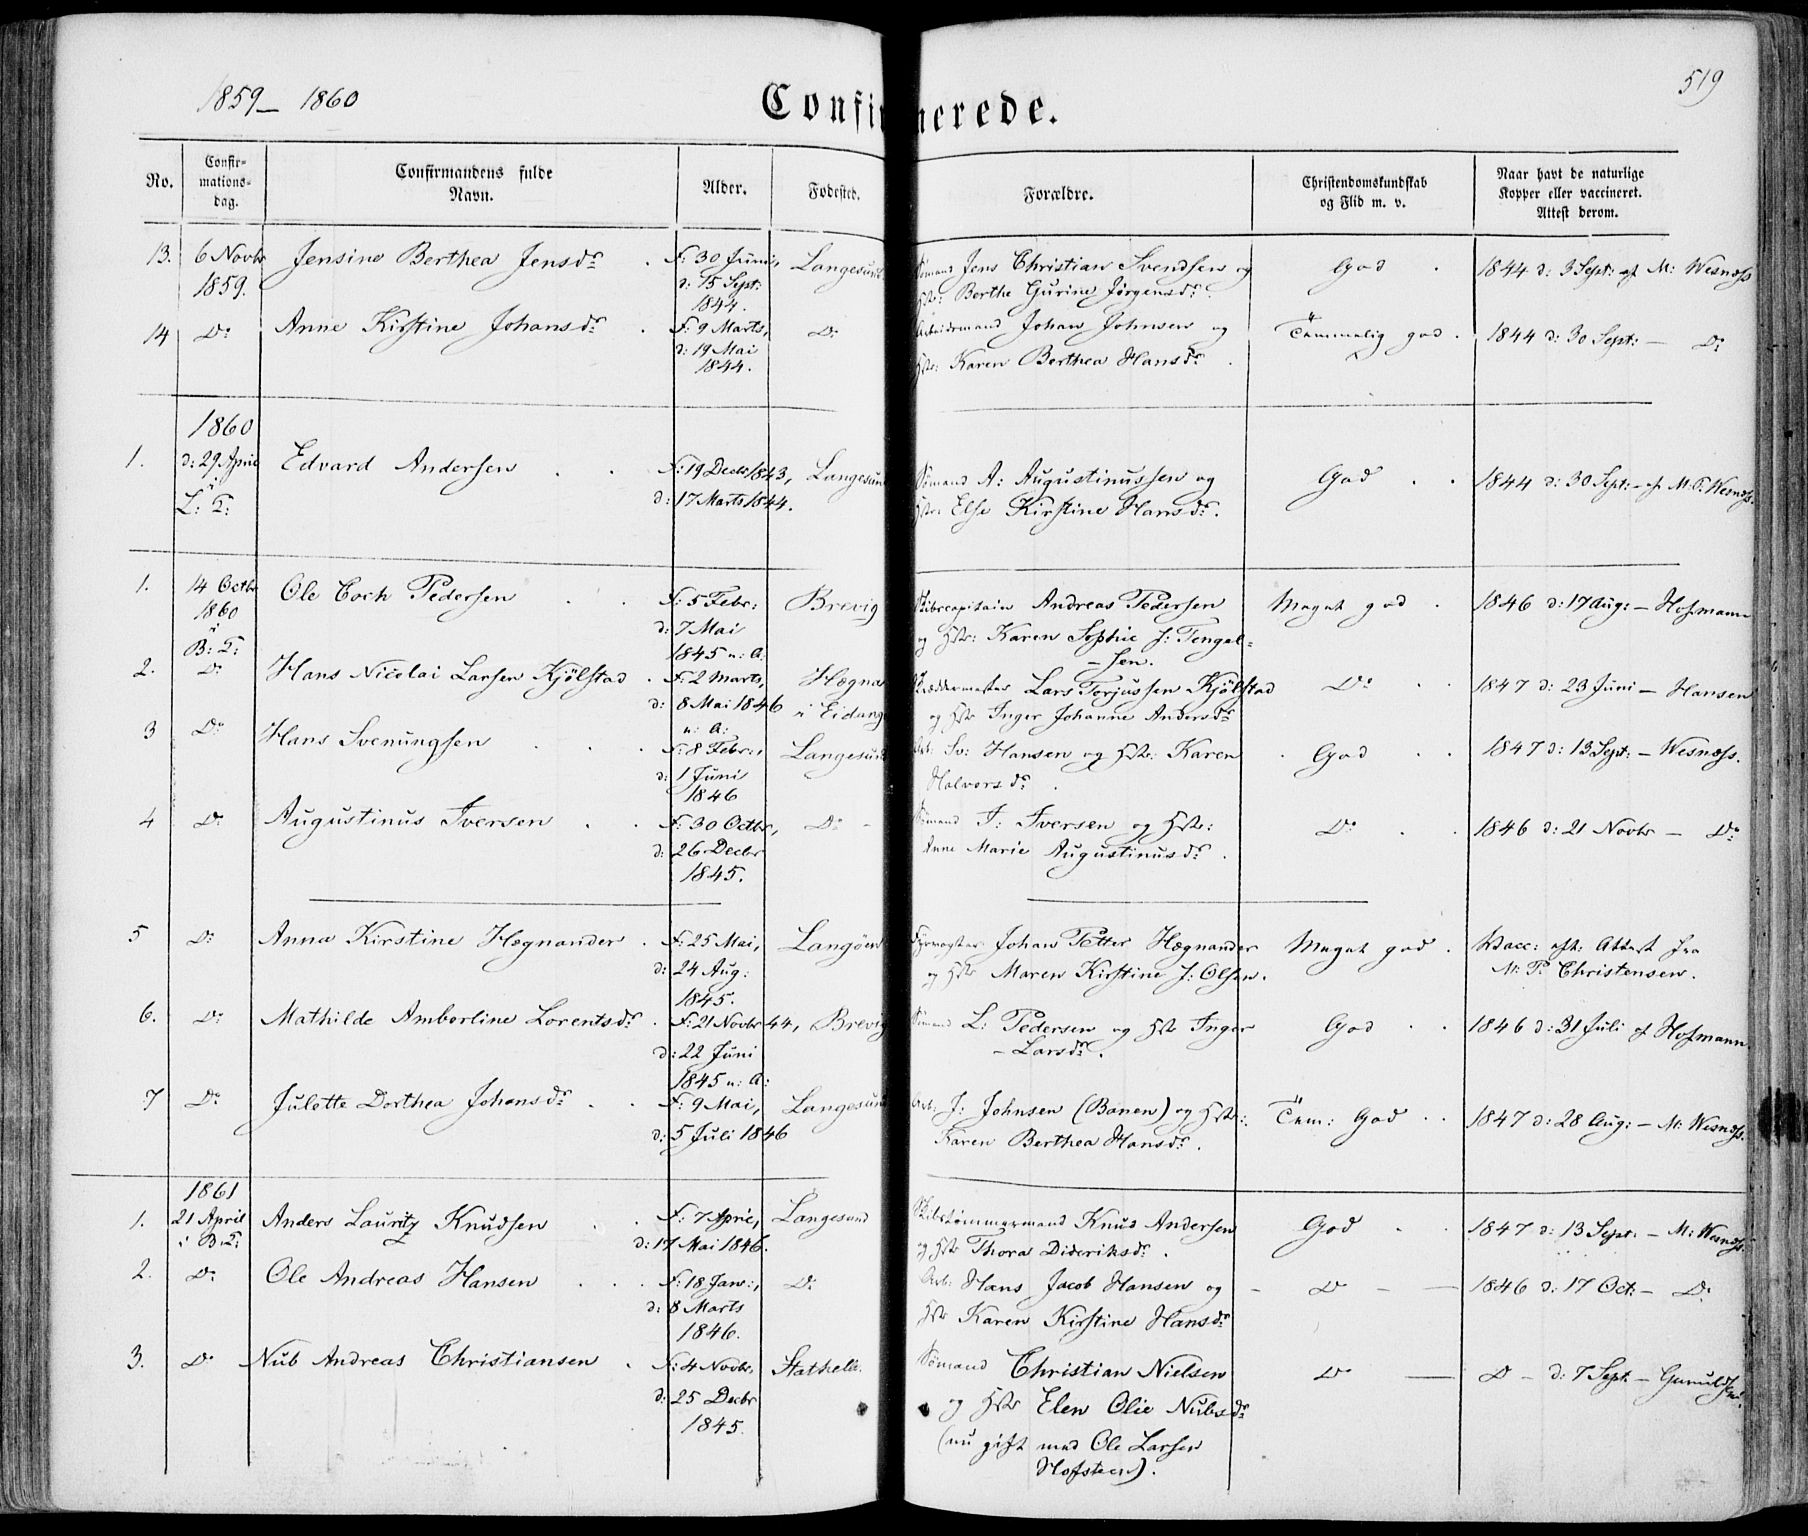 1859 – 1860
Confirmerede.
519
No.
Confir-
mations-
dag.
Confirmandens fulde
Navn.
Alder.
Fødested.
Forældre.
Christendomskundskab
og Flid m. v.
Naar havt de naturlige
Kopper eller vaccineret.
Attest derom.
13. 6 Novbr Jensine Berthea Jensdr. f: 30 Juni, Langesund Sømand Jens Christian Svendsen og God 1844 d: 3 Sept: af M: Wesnæss
1859. d: 15 Sept: Hstr: Berthe Gurine Jørgensdr.
1844.
14 Do Anne Kirstine Johansdr. f: 9 Marts, Do Arbeidsmand Johan Johnsen og Temmelig god. 1844 d: 30 Sept: – Do
d: 19 Mai Hstr: Karen Berthea Hansdr.
1844.
1860
1. d: 29 April Edvard Andersen f: 19 Decbr 1843, Langesund Sømand A: Augustinussen og God 1844 d: 30 Sept: – af M. P. Wesnæss.
i L: T: d: 17 Marts 1844. Hstr: Else Kirstine Hansdr.
1. 14 Octbr Ole Coch Pedersen f: 5 Febr: Brevig Skibscapitain Andreas Pedersen Meget god 1846 d: 17 Aug: – Hofmann
1860 d: 7 Mai og Hstr: Karen Sophie f: Tengel-
i B: T: 1845 n: A: –sen.
2. Do Hans Nicolai Larsen Kjölstad f: 2 Marts, Hægna Skræddermester Lars Torjussen Kjölstad Do 1847 d: 23 Juni – Hansen
d: 8 Mai 1846 i Eidanger og Hstr Inger Johanne Andersdr
n: A:
3 Do Hans Svenungsen f: 8 Febr:, Langesund Arb: Sv: Hansen og Hstr: Karen God 1847 d: 13 Sept: – Wesnæss.
d: 1 Juni Halvorsdr.
1846
4 Do Augustinus Iversen f: 30 Octbr, Do Sømand I: Iversen og Hstr: Do 1846 d: 21 Novbr – Do
d: 26 Decbr Anne Marie Augustinusdr.
1845.
5 Do Anna Kirstine Hegnander f: 25 Mai, Langöen Fyrvogter Johan Petter Hægnander Meget god. Vacc: eft: Attest fra
d: 24 Aug: og Hstr Maren Kirstine f: Olsen. M: P: Christensen.
1845.
6. Do Mathilde Amborline Lorentsdr. f: 21 Novbr 44, Brevig Sømand L: Pedersen og Hstr Inger God 1846 d: 31 Juli af Hofmann.
d: 22 Juni – Larsdr.
1845 n: A:
7 Do Julette Dorthea Johansdr. f: 9 Mai, Langesund Arb: J: Johnsen (Banen) og Hstr: Tem: God 1847 d: 28 Aug: – M: Wesnæss.
d: 5 Juli 1846 Karen Berthea Hansdr.
1861
1. 21 April Anders Lauritz Knudsen f: 7 April, Langesund Skibstømmermand Knud Andersen God 1847 d: 13 Sept: – M: Wesnæss.
i B: T: d: 17 Mai 1846. og Hstr Thora Dideriksdr.
2. Do Ole Andreas Hansen f: 18 Jan:, Do Arb: Hans Jacob Hansen og – Do – 1846 d: 17 Oct: – Do
d: 8 Marts Hstr Karen Kirstine Hansdr
1846.
3. Do Nub Andreas Christiansen f: 4 Novbr, Stathelle. Sømand Christian Nielsen Do – Do – d: 7 Sept –
d: 25 Decbr og Hstr Elen Olie Nubsdr
1845. (nu gift med Ole Larsen
Hofsteen).